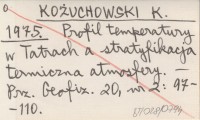 KOŻUCHOWSKI K.
1975. Profil temperatury
w Tatrach a stratyfikacja
termiczna atmosfery. —
Prz. Geofiz. 20, nr 2: 97-
-110.